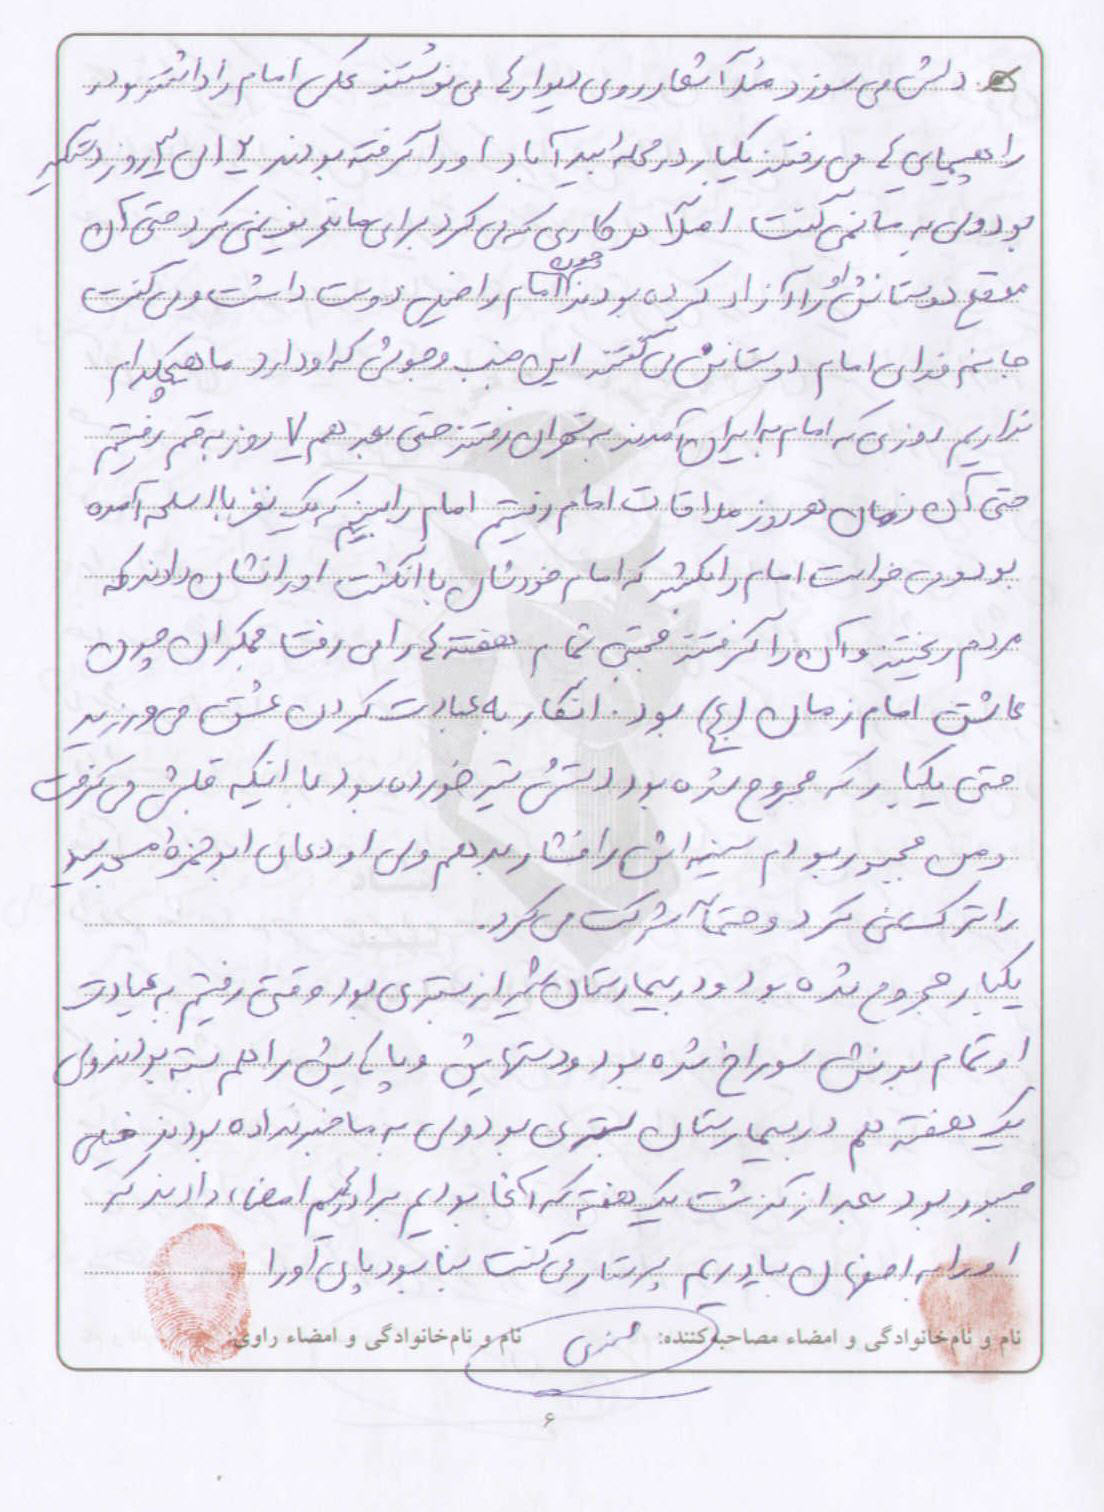 دلش می سوزد مثلاً شعار روی دیوارها می نوشتند عکس امام را داشتند و در
راهپیمایی ها می رفتند یکبار در محله ابیدآباد او را گرفته بودند ۲ الی ۳ روز دستگیر
بود ولی به ما نمی گفت اصلاً هر کاری که می کرد برای ما تعریف نمی کرد حتی آن
موقع دوستانش او را آزاد کرده بودند چون امام را خیلی دوست داشت و می گفت
جانم فدای امام دوستانش می گفتند این جنب و جوش که او دارد ما هیچکدام
نداریم روزی که امام به ایران آمدند به تهران رفتند حتی بعد هم ۷ روز به قم رفتیم
حتی آن زمان هر روز ملاقات امام رفتیم امام را ببینیم که یک نفر با اسلحه آمده
بود و می خواست امام را بکشد که امام خودشان با انگشت او را نشان دادند که
مردم ریختند و آن را گرفتند مجتبی تمام هفته ها را می رفت جمکران چون
عاشق امام زمان (عج) بود. انگار به عبادت کردن عشق می ورزید
حتی یکبار که مجروح شده بود دستش تیر خورده بود با اینکه قلبش می گرفت
و من مجبور بودم سینه اش را فشار بدهم ولی او دعای ابوحمزه مسجد سید
را ترک نمی کرد و حتماً شرکت می کرد.
یکبار مجروح شده بود و در بیمارستان شیراز بستری بود وقتی رفتیم به عیادت
او تمام بدنش سوراخ شده بود و دستهایش و پاهایش را هم بسته بودند ولی
یک هفته هم در بیمارستان بستری بود ولی به ما خبر نداده بودند خیلی
صبور بود بعد از گذشت یک هفته که آنجا بودیم برادرم امضاء دادند که
او را به اصفهان بیاوریم پرستار می گفت بنا بود پای او را
نام و نام‌خانوادگی و امضاء مصاحبه‌کننده: نام و نام‌خانوادگی و امضاء راوی:
۶